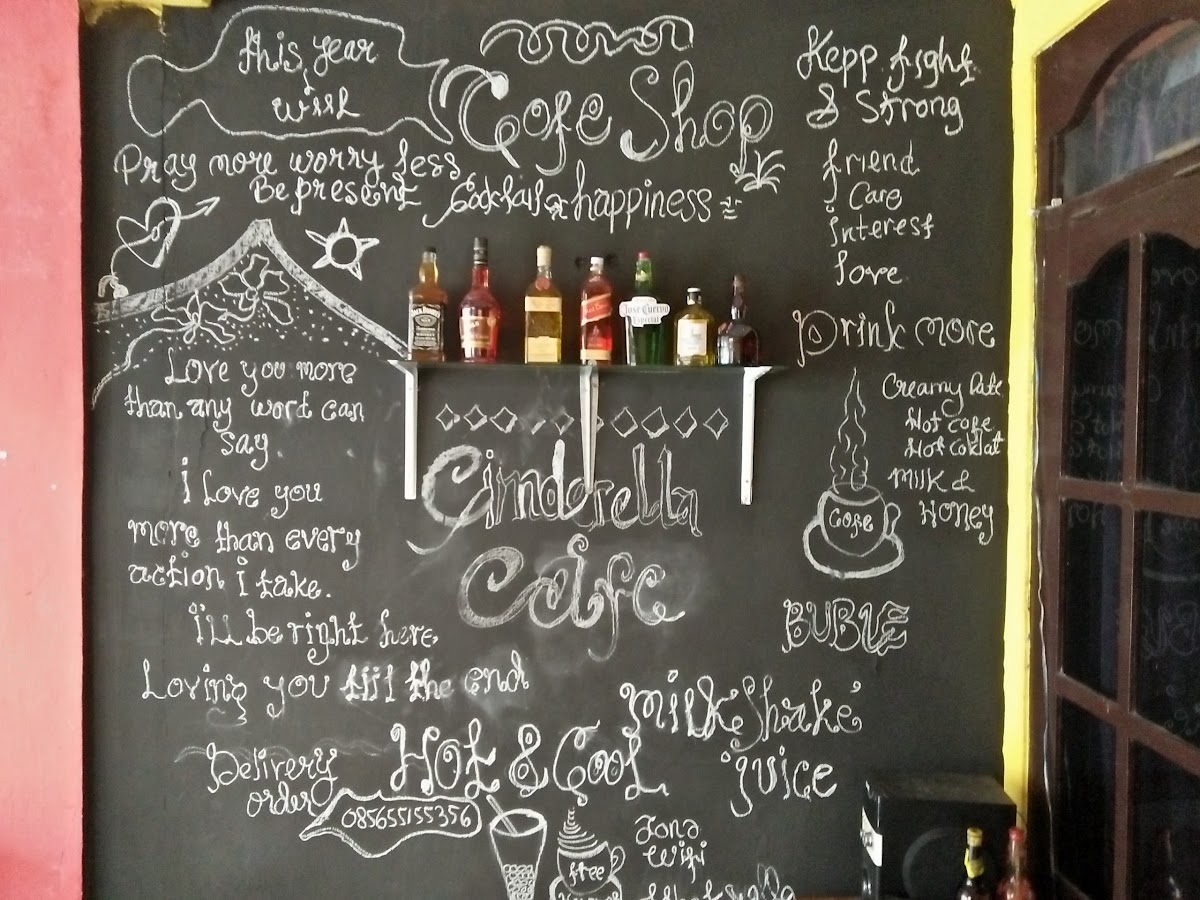 this year
will
Pray more worry less
Be present
Cofe Shop
Cocktail & happiness
Kepp fight
& Strong
friend
Care
interest
love
Drink more
Creamy Late
Hot cofe
Hot coklat
Milk &
Honey
Cofe
BUBLE
Love you more
than any word can
say.
i Love you
more than every
action i take.
i'll be right here
Loving you till the end
JACK DANIEL'S
Jose Cuervo
Especial
Cinderella
Cafe
Milk Shake
juice
Hot & Cool
Delivery
order
085655155356
Zona
Wifi
free